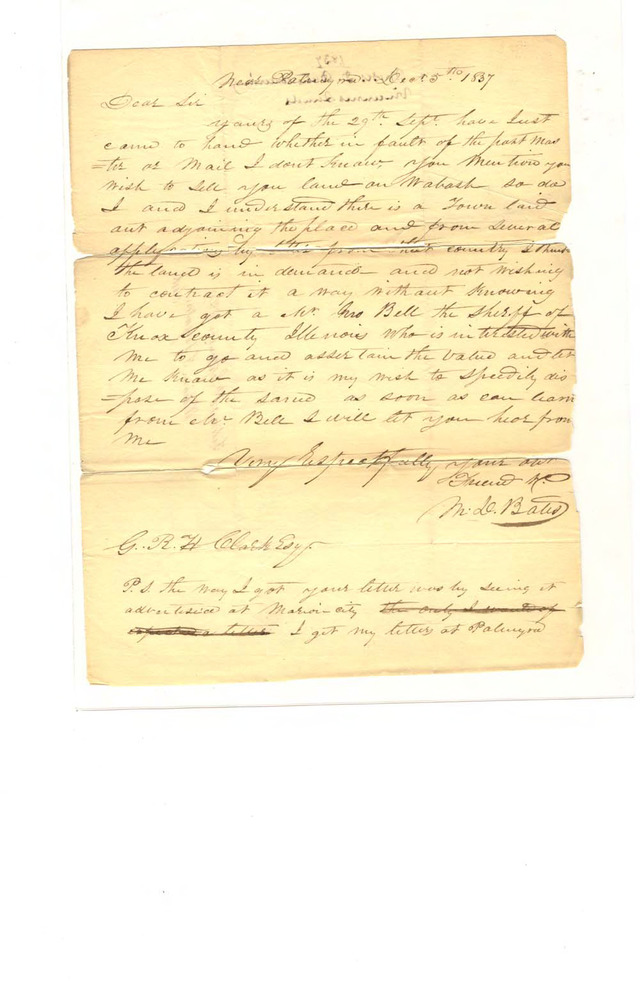 Near Palmyra Dec 5th 1837
Dear Sir
yours of the 29th Sept. have Just
came to hand whether in fault of the post mas
=ter or Mail I dont know, you Mention you
wish to sell you land on Wabash so do
I and I understand there is a Town laid
out adjoining the place and from several
by from that country I think
the land is in demand and not wishing
to contract it a way without knowing
I have got a Mr. Bell the Sheriff of
Knox county Illinois who is intrested with
me to go and assertain the value and let
me know as it is my wish to speedily dis
=pose of the same as soon as can learn
from Mr. Bell I will let you hear from
me
Very Respectfully your old
Friend &c
M. D. Bates
G. R. H Clark Esqr.
P.S. the way I got your letter was by seeing it
advertised at Marion city the only I
a letter I get my letters at Palmyra